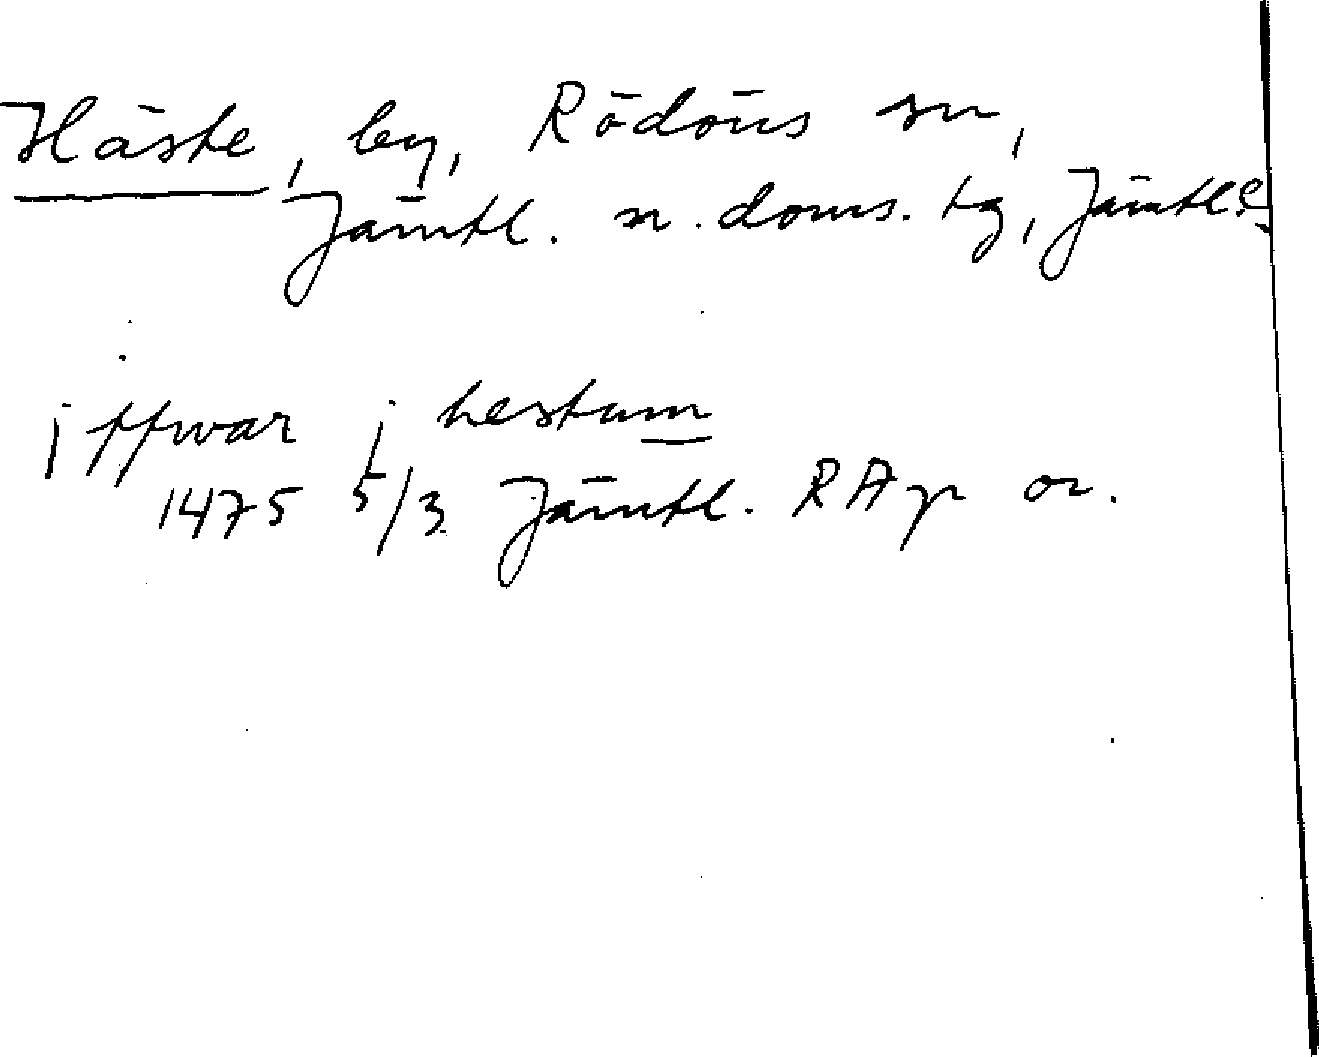 Häste, by, Rödöns sn,
Jämtl. n. doms. tg, Jämtl.
jffwar j hestum
1475 5/3 Jämtl. RAp or.